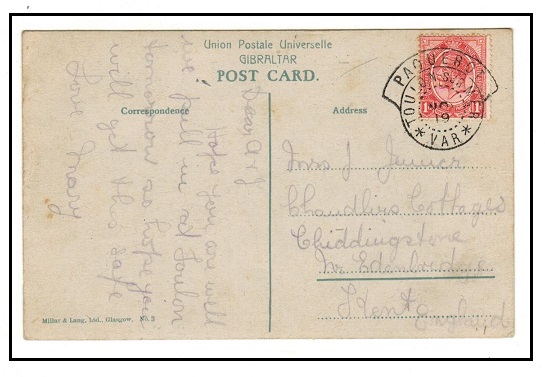 Union Postale Universelle
GIBRALTAR
POST CARD.
Correspondence
Address
PAQUEBOT
TOULON S. MER
19
* VAR *
1d 1d
Dear
Hope you are well
we pull in at Toulon
tomorrow so hope you
will get this safe
Love
Mrs J Jenner
Chandlers Cottages
Chiddingstone
Nr Edenbridge
Kent England
Millar & Lang, Ltd., Glasgow. No. 3